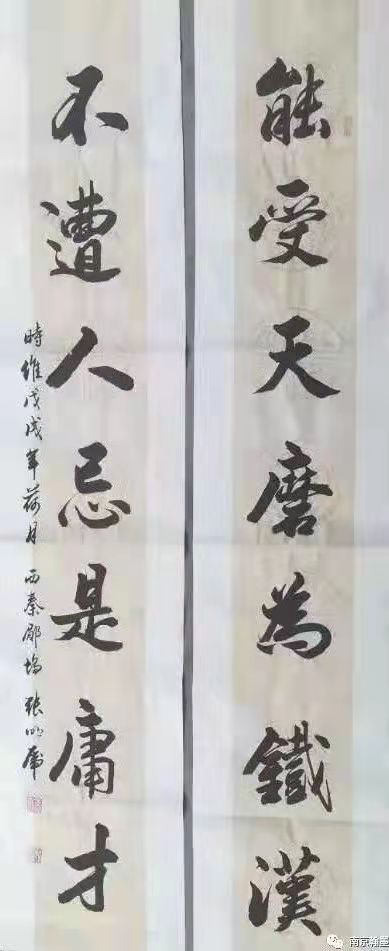 能受天磨為鐵漢
不遭人忌是庸才
時維戊戌年荷月西秦郿塢張鳴虎
南京翰墨